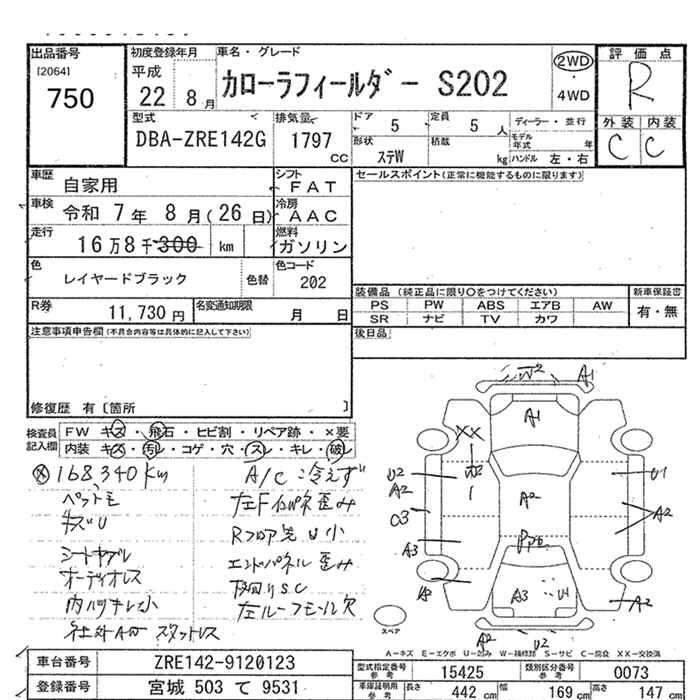 出品番号 初度登録年月 車名・グレード 評価点
[2064] 平成 カローラフィールダー S202 2WD R
750 22 8月 4WD
型式 排気量 ドア 5 定員 5人 ディーラー・並行 外装 内装
DBA-ZRE142G 1797 CC 形状 ステW 積載 kg モデル年式 年 C C
ハンドル 左・右
車歴 自家用 シフト FAT セールスポイント(正常に機能するものに限ります)
車検 令和 7年 8月(26日) 冷房 AAC
走行 16万8千300 km 燃料 ガソリン
色 レイヤードブラック 色替 色コード 202
装備品(純正品に限り○をつけてください) 新車保証書
PS PW ABS エアB AW 有・無
R券 11,730円 名変通知期限 月 日 SR ナビ TV カワ
注意事項申告欄(不具合内容等は具体的に記入して下さい) 後日品
修復歴 有〔箇所 〕
検査員記入欄 FW キズ・飛石・ヒビ割・リペア跡・×要
内装 キズ・汚レ・コゲ・穴・スレ・キレ・破レ
168340km A/C冷えず
ペット毛
キズU Rフロア先U小
エンドパネル歪み
オーディオレス
内ハリキレ小 左ルーフモール欠
社外AW スタットレス
W2 A1
A1
XX
U2 W2 U1
A2 A2 A2
A3
A3 U1
A2 A2
U2
スペア
A－キズ E－エクボ U－凹み W－補修跡 S－サビ C－腐食 XX－交換済
車台番号 ZRE142-9120123 型式指定番号 参考 15425 類別区分番号 参考 0073
登録番号 宮城 503 て 9531 車庫証明用 参考 長さ 442 cm 幅 169 cm 高さ 147 cm